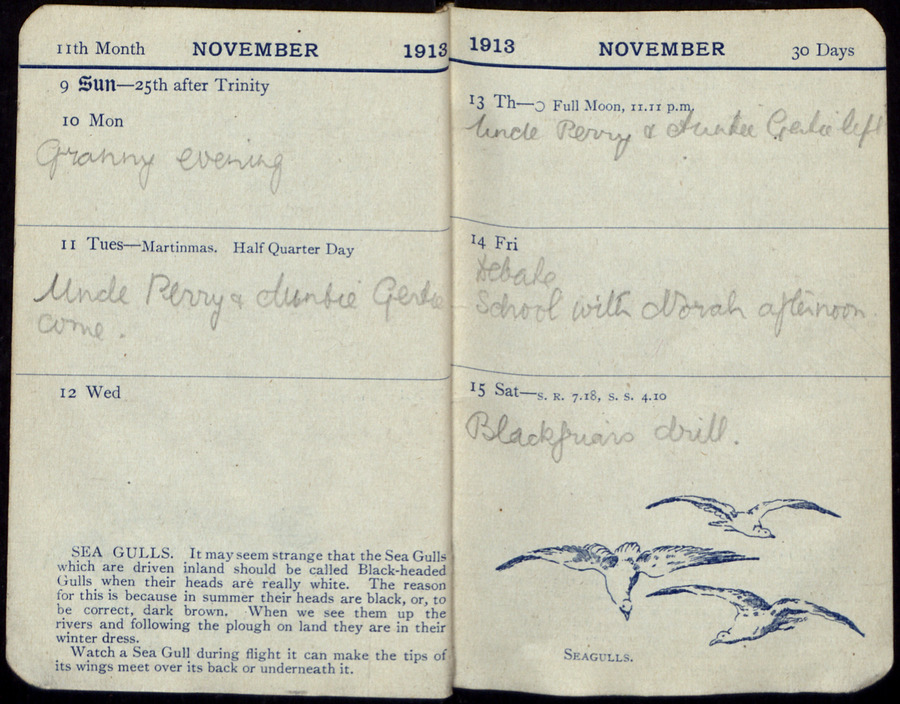 11th Month NOVEMBER 1913
9 Sun—25th after Trinity
10 Mon
Granny evening
11 Tues—Martinmas. Half Quarter Day
Uncle Perry & Auntie Gertie
come.
12 Wed
SEA GULLS. It may seem strange that the Sea Gulls
which are driven inland should be called Black-headed
Gulls when their heads are really white. The reason
for this is because in summer their heads are black, or, to
be correct, dark brown. When we see them up the
rivers and following the plough on land they are in their
winter dress.
Watch a Sea Gull during flight it can make the tips of
its wings meet over its back or underneath it.
1913 NOVEMBER 30 Days
13 Th—Full Moon, 11.11 p.m.
Uncle Perry & Auntie Gertie left
14 Fri
Debate
School with Norah afternoon.
15 Sat—S. R. 7.18, S. S. 4.10
Blackfriars drill.
SEAGULLS.